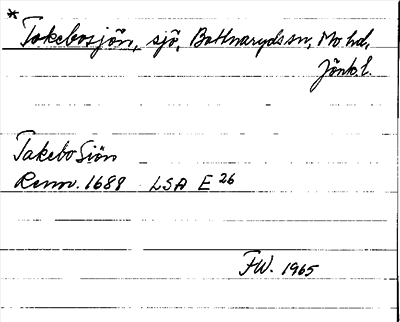 * Tokebosjön, sjö, Bottnaryds sn, Mo hd,
Jönk. l.
Takebo Siön
Renv. 1688 LSA E 26
FW. 1965